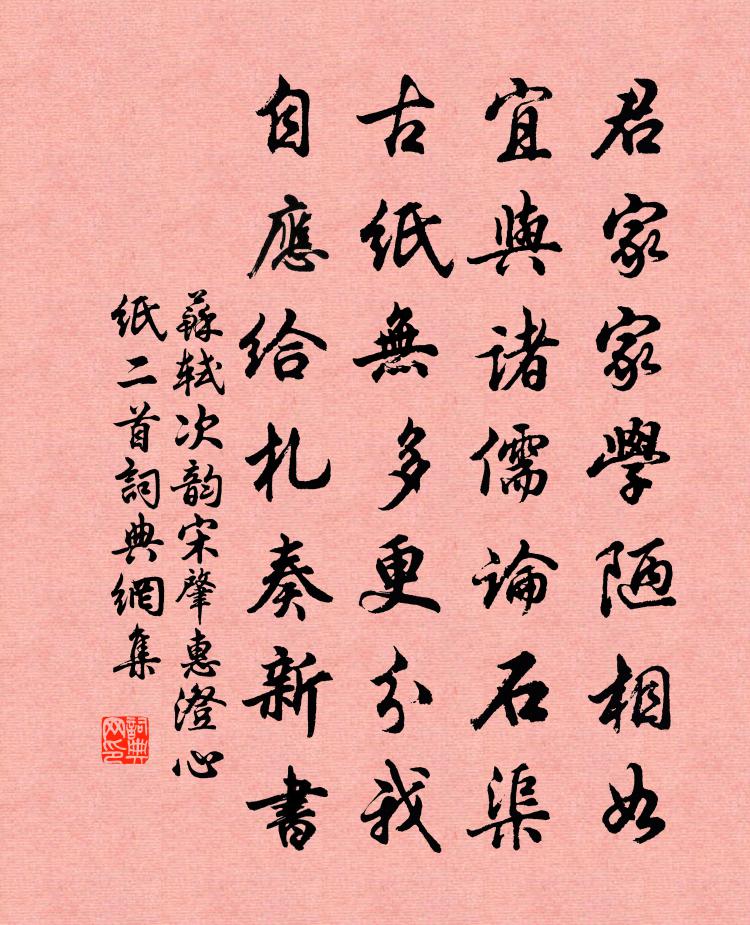 君家家學陋相如
宜與諸儒論石渠
古紙無多更分我
自應給札奏新書
蘇軾次韵宋肇惠澄心
紙二首詞典網集
詞典網印